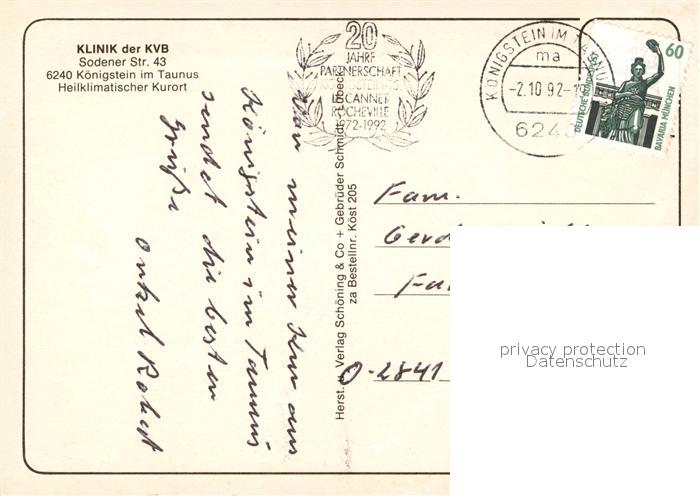 KLINIK der KVB
Sodener Str. 43
6240 Königstein im Taunus
Heilklimatischer Kurort
20
JAHRE
PARTNERSCHAFT
LE CANNET
ROCHEVILLE
1972-1992
KÖNIGSTEIN IM TAUNUS
ma
-2.10.92-1
624
60
DEUTSCHE BUNDESPOST
BAVARIA MÜNCHEN
Von meiner Kur aus
Königstein im Taunus
sendet die besten
Grüße
Onkel Robert
Herst. u. Verlag Schöning & Co + Gebrüder Schmidt, Lübeck
za Bestellnr. Köst 205
Fam.
Gerd
O-2841
privacy protection
Datenschutz